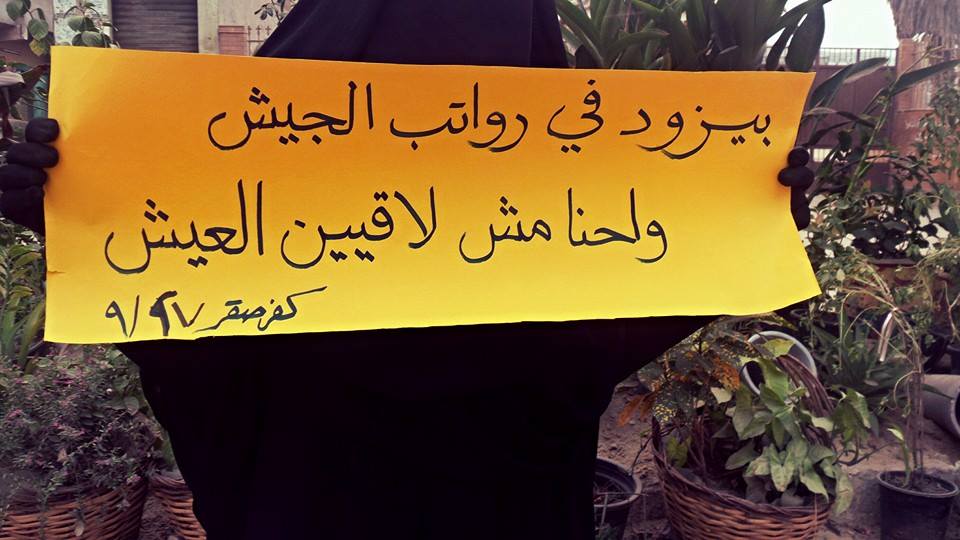 بيزود في رواتب الجيش
واحنا مش لاقيين العيش
كفر صقر ٢٧/٩